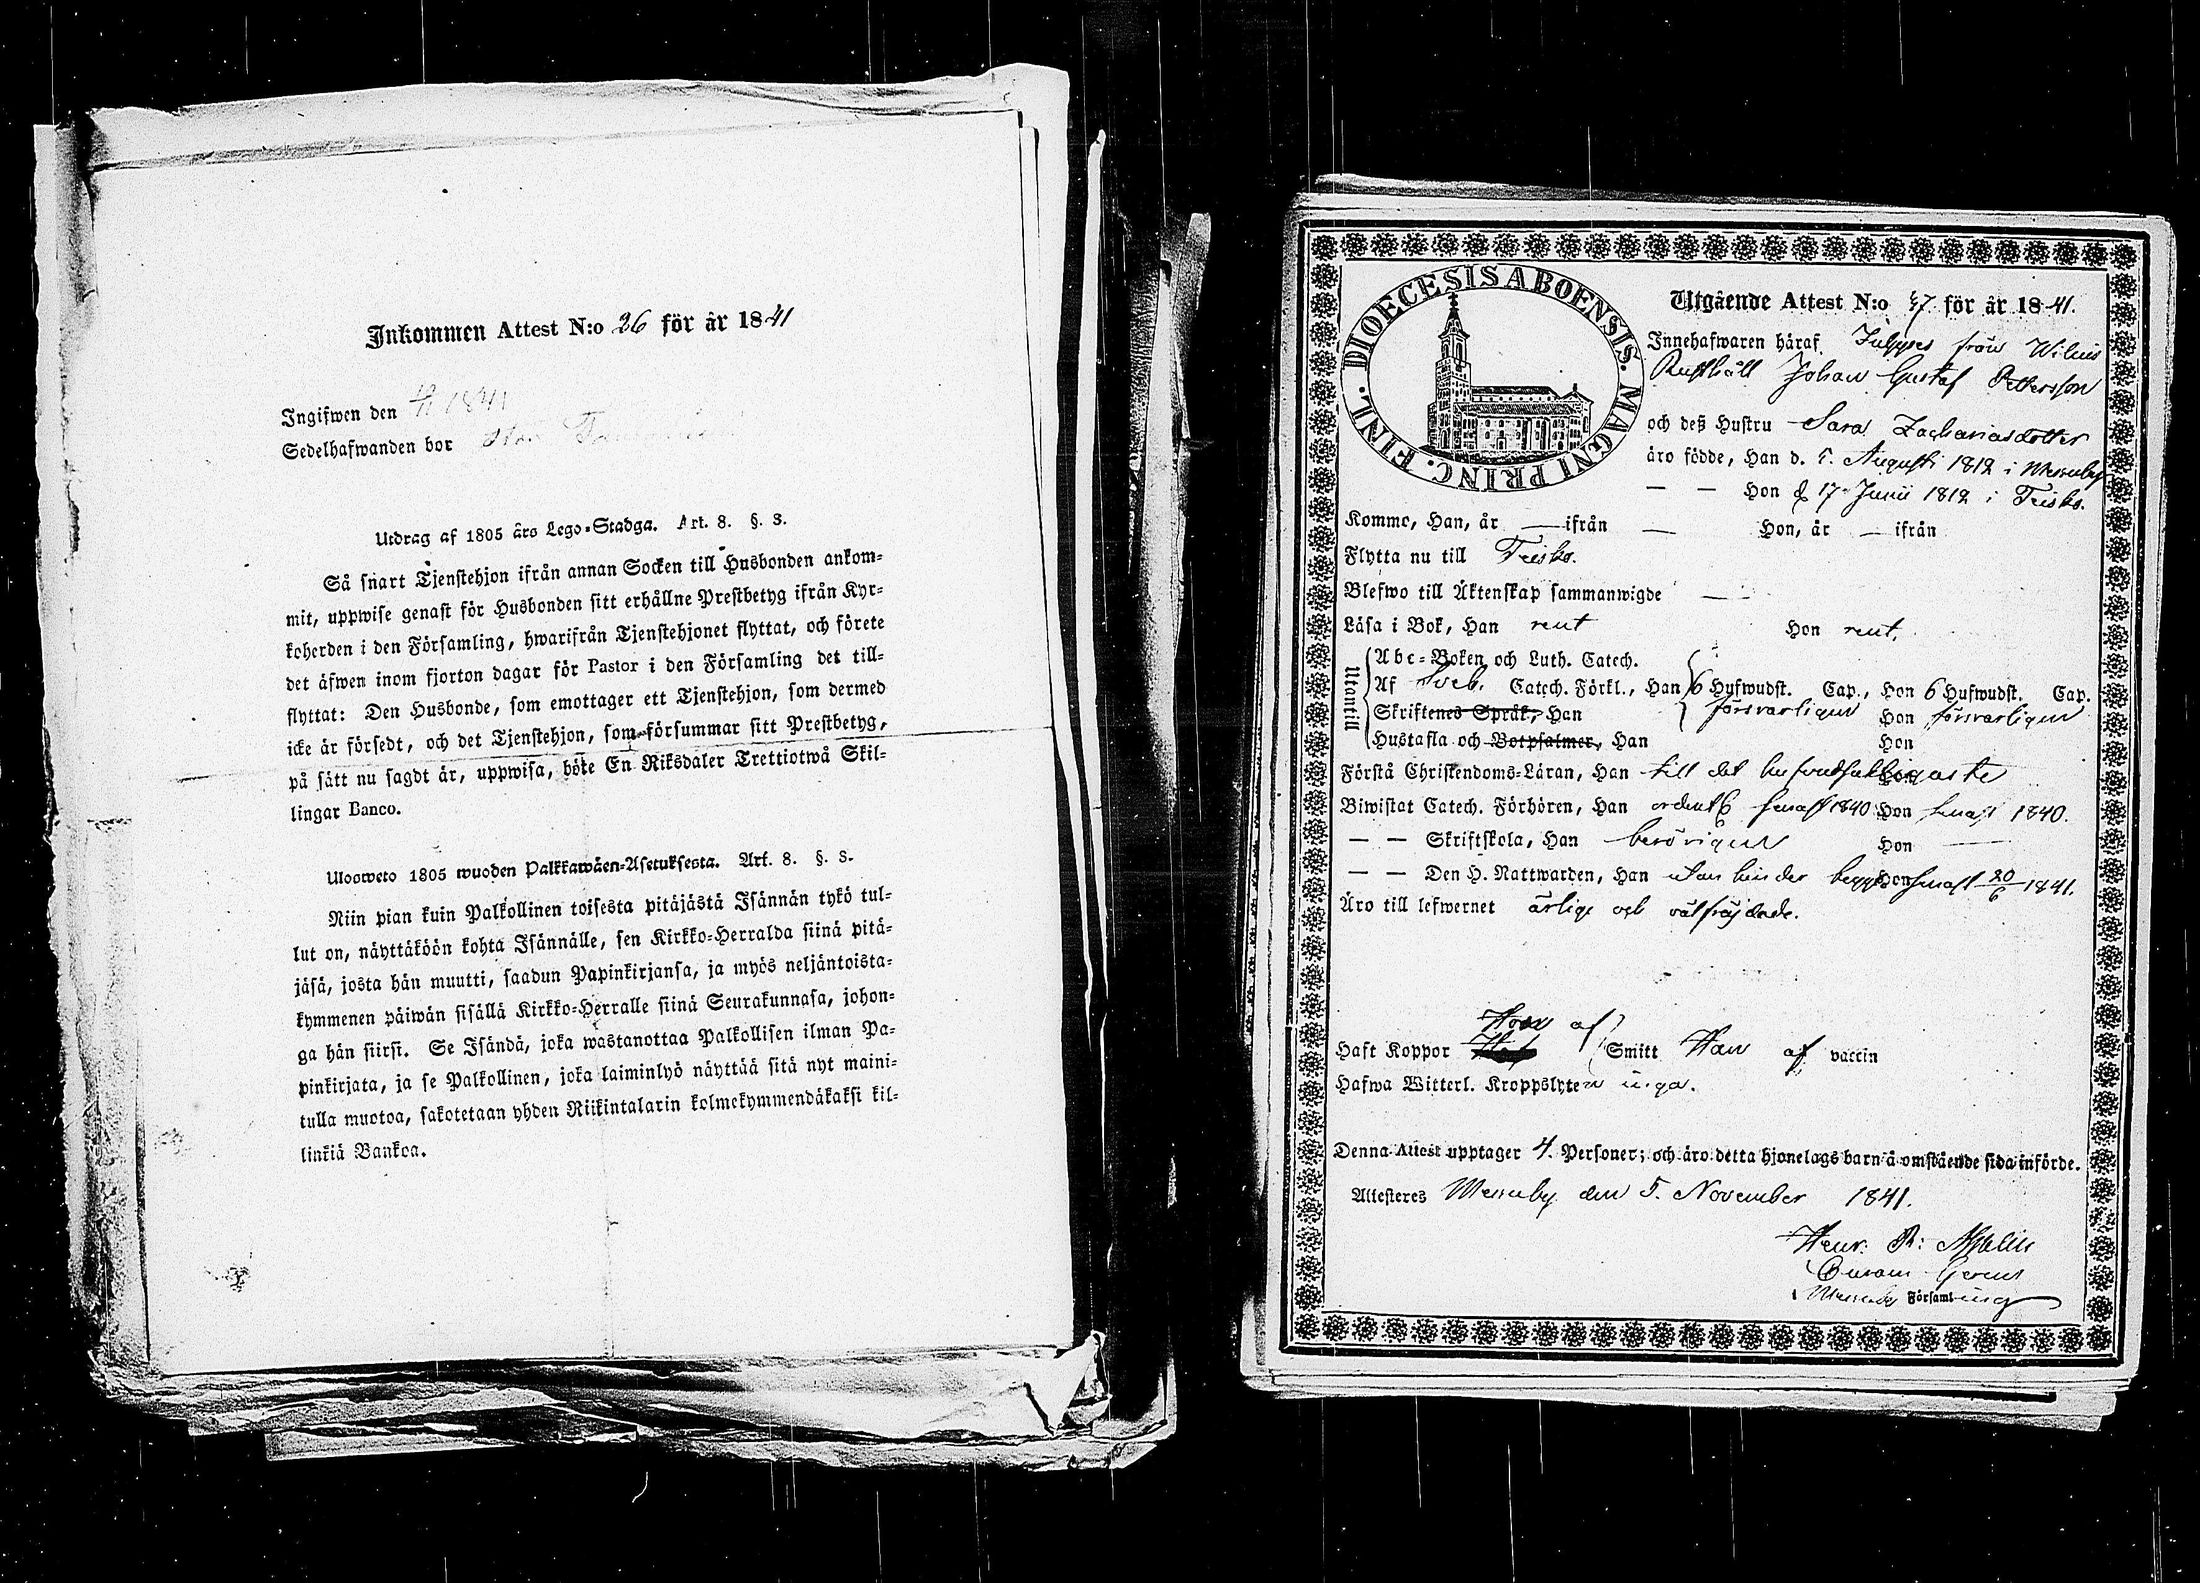 Inkommen Attest N:o 26 för år 1841
Ingifwen den 1841
Sedelhafwanden bor
Utdrag af 1805 års Lego-Stadga. Art. 8. §. 3.
Så snart Tjenstehjon ifrån annan Socken till Husbonden ankom-
mit, uppwise genast för Husbonden sitt erhållne Prestbetyg ifrån Kyr-
koherden i den Församling, hwarifrån Tjenstehjonet flyttat, och förete
det äfwen inom fjorton dagar för Pastor i den Församling det till-
flyttat: Den Husbonde, som emottager ett Tjenstehjon, som dermed
icke är försedt, och det Tjenstehjon, som försummar sitt Prestbetyg,
på sätt nu sagdt är, uppwisa, böte En Riksdaler Trettiotwå Skil-
lingar Banco.
Ulosweto 1805 wuoden Palkkawäen-Asetuksesta. Art. 8. §. 3.
Niin pian kuin Palkollinen toisesta pitäjästä Isännän tykö tul-
lut on, näyttäköön kohta Isännälle, sen Kirkko-Herralda siinä pitä-
jäsä, josta hän muutti, saadun Papinkirjansa, ja myös neljäntoista-
kymmenen päiwän sisällä Kirkko-Herralle siinä Seurakunnasa, johon-
ga hän siirsi. Se Isändä, joka wastanottaa Palkollisen ilman Pa-
pinkirjata, ja se Palkollinen, joka laiminlyö näyttää sitä nyt maini-
tulla muotoa, sakotetaan yhden Riikintalarin kolmekymmendäkaksi kil-
linkiä Bankoa.
DIOECESIS ABOENSIS. MAGNI PRINC. FINL.
Utgående Attest N:o 47 för år 1841.
Innehafwaren häraf från
Rusthåll Johan Gustaf Pettersson
och deß Hustru Sara Zachariasdotter
äro födde, Han d. 5. Augusti 1812 i Messuby
— — Hon d 17 Junii 1812 i Teisko.
Komme, Han, år — ifrån — Hon, år — ifrån
Flytta nu till Teisko.
Blefwo till Äktenskap sammanwigde —
Läsa i Bok, Han rent Hon rent.
Utantill
Abc-Boken och Luth. Catech.
Af Sveb. Catech. Förkl., Han 6 Hufwudst. Cap., Hon 6 Hufwudst. Cap.
Skriftenes Språk, Han försvarligen Hon försvarligen
Hustafla och Botpsalmer, Han Hon
Förstå Christendoms-Läran, Han till det hufvudsakligaste
Biwistat Catech. Förhören, Han ordentl. senast 1840 Hon senast 1840.
— — Skriftskola, Han behörigen Hon —
— — Den H. Nattwarden, Han utan hinder begge Hon senast 20/6 1841.
Äro till lefwernet ärlige och välfräjdade.
Haft Koppor Hon af Smitt Han af vaccin
Hafwa Witterl. Kroppslyten inga.
Denna Attest upptager 4. Personer; och äro detta hjonelags barn å omstående sida införde.
Attesteres Messuby den 5. November 1841.
Henr. R:
Curam Gerens
i Messuby Församling